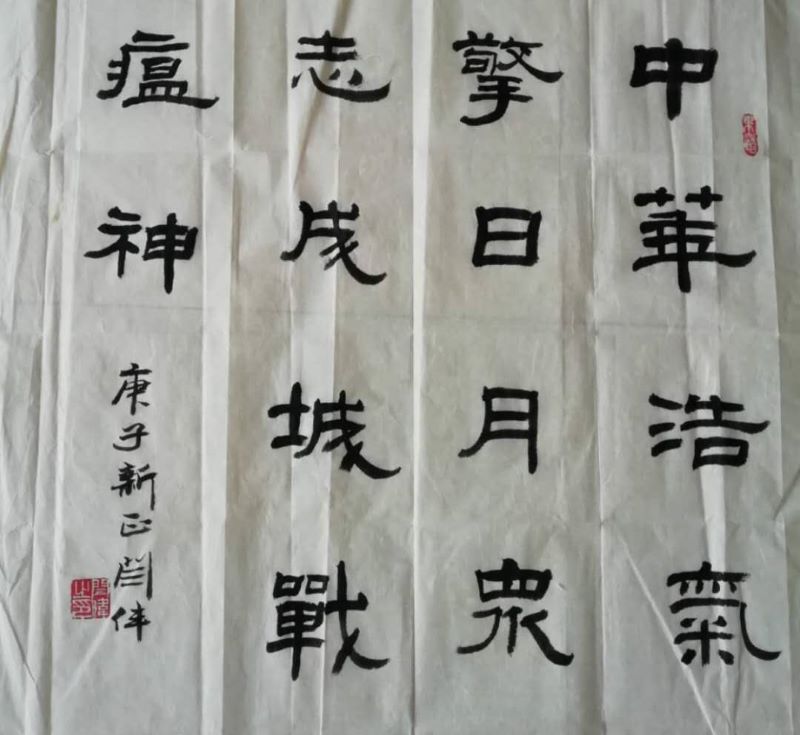 中華浩氣
擎日月眾
志成城戰
瘟神
庚子新正闫伟